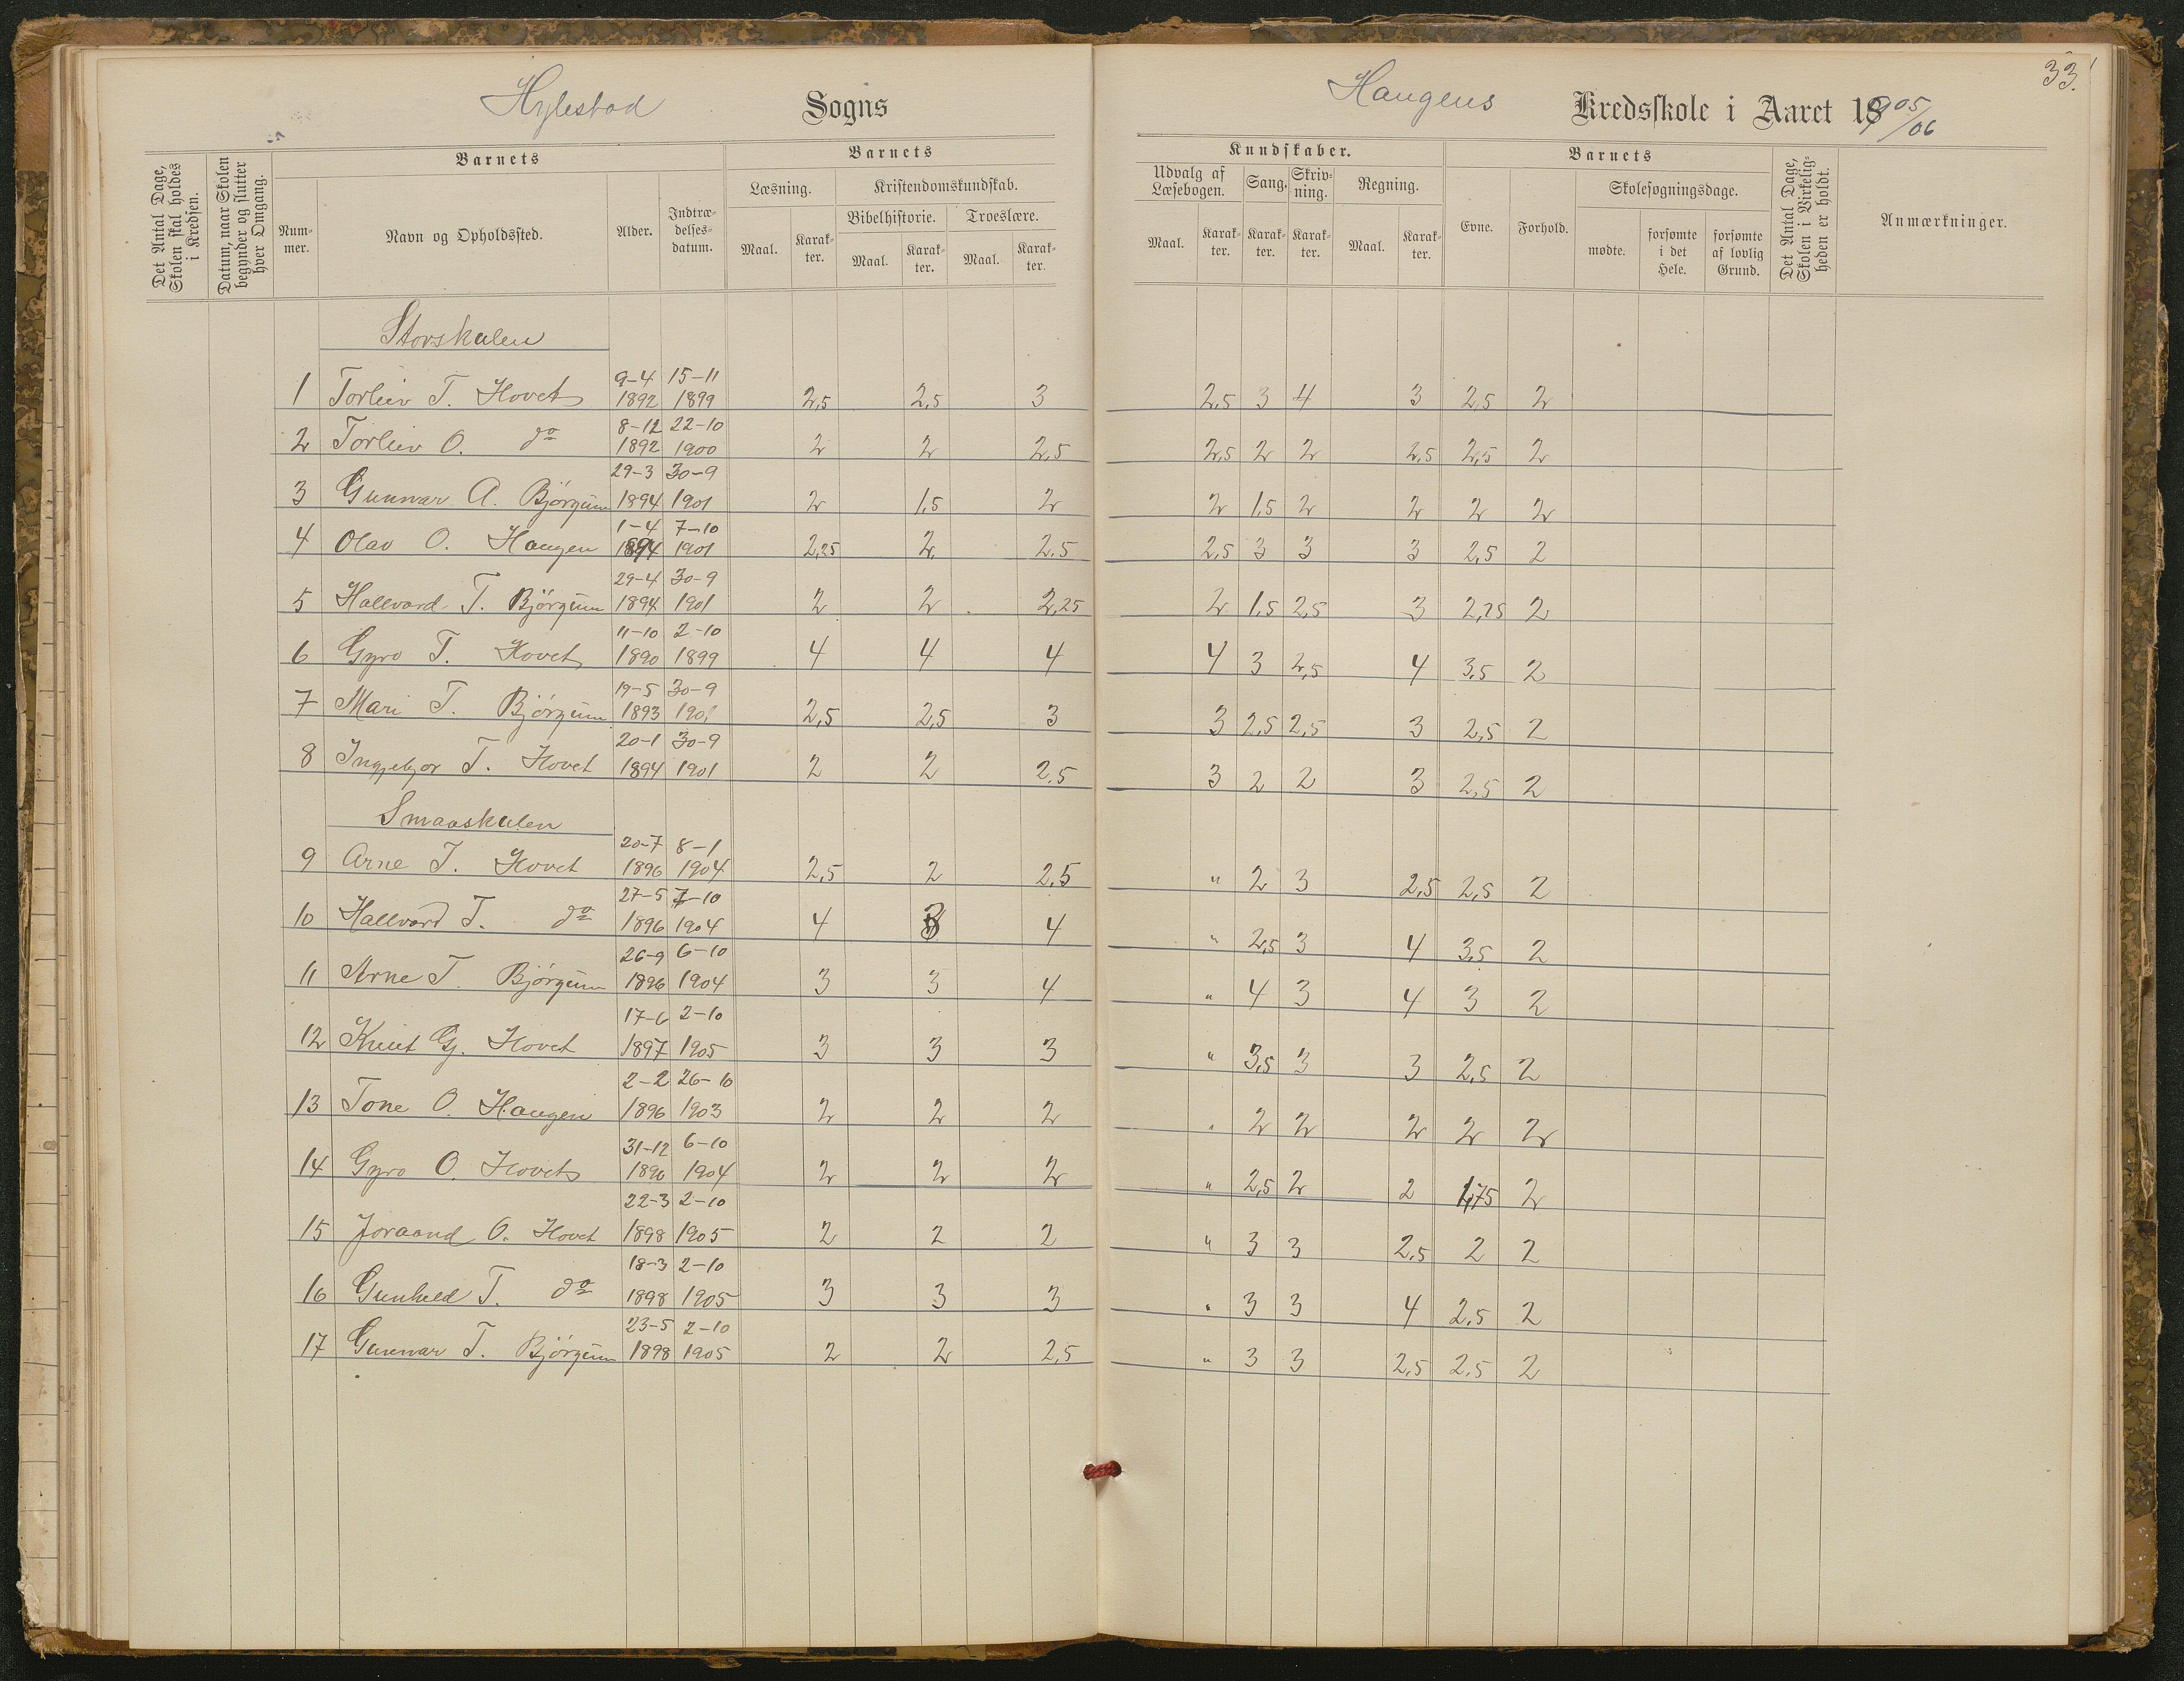 33.
Hylestad Sogns
Haugens Kredsskole i Aaret 1905/06
Det Antal Dage, Skolen skal holdes i Kredsen.
Datum, naar Skolen begynder og slutter hver Omgang.
Barnets
Nummer.
Navn og Opholdssted.
Alder.
Indtrædelsesdatum.
Barnets
Læsning.
Maal.
Karakter.
Kristendomskundskab.
Bibelhistorie.
Maal.
Karakter.
Troeslære.
Maal.
Karakter.
Kundskaber.
Udvalg af Læsebogen.
Maal.
Karakter.
Sang.
Karakter.
Skrivning.
Karakter.
Regning.
Maal.
Karakter.
Barnets
Evne.
Forhold.
Skolesøgningsdage.
mødte.
forsømte i det Hele.
forsømte af lovlig Grund.
Det Antal Dage, Skolen i Virkeligheden er holdt.
Anmærkninger.
Storskulen
1 Torleiv T. Hovet 9-4 1892 15-11 1899 2,5 2,5 3 2,5 3 4 3 2,5 2
2 Torleiv O. do 8-12 1892 22-10 1900 2 2 2,5 2,5 2 2 2,5 2,5 2
3 Gunnar A. Bjørgum 29-3 1894 30-9 1901 2 1,5 2 2 1,5 2 2 2 2
4 Olav O. Haugen 1-4 1894 7-10 1901 2,25 2 2,5 2,5 3 3 3 2,5 2
5 Hallvard T. Bjørgum 29-4 1894 30-9 1901 2 2 2,25 2 1,5 2,5 3 2,25 2
6 Gyro T. Hovet 11-10 1890 2-10 1899 4 4 4 4 3 2,5 4 3,5 2
7 Mari T. Bjørgum 19-5 1893 30-9 1901 2,5 2,5 3 3 2,5 2,5 3 2,5 2
8 Ingjebjor T. Hovet 20-1 1894 30-9 1901 2 2 2,5 3 2 2 3 2,5 2
Smaaskulen
9 Arne T. Hovet 20-7 1896 8-1 1904 2,5 2 2,5 " 2 3 2,5 2,5 2
10 Hallvard T. do 27-5 1896 7-10 1904 4 3 4 " 2,5 3 4 3,5 2
11 Arne T. Bjørgum 26-9 1896 6-10 1904 3 3 4 " 4 3 4 3 2
12 Knut G. Hovet 17-6 1897 2-10 1905 3 3 3 " 3,5 3 3 2,5 2
13 Tone O. Haugen 2-2 1896 26-10 1903 2 2 2 " 2 2 2 2 2
14 Gyro O. Hovet 31-12 1896 6-10 1904 2 2 2 " 2,5 2 2 1,75 2
15 Joraand O. Hovet 22-3 1898 2-10 1905 2 2 2 " 3 3 2,5 2 2
16 Gunheld T. do 18-3 1898 2-10 1905 3 3 3 " 3 3 4 2,5 2
17 Gunnar T. Bjørgum 23-5 1898 2-10 1905 2 2 2,5 " 3 3 2,5 2,5 2